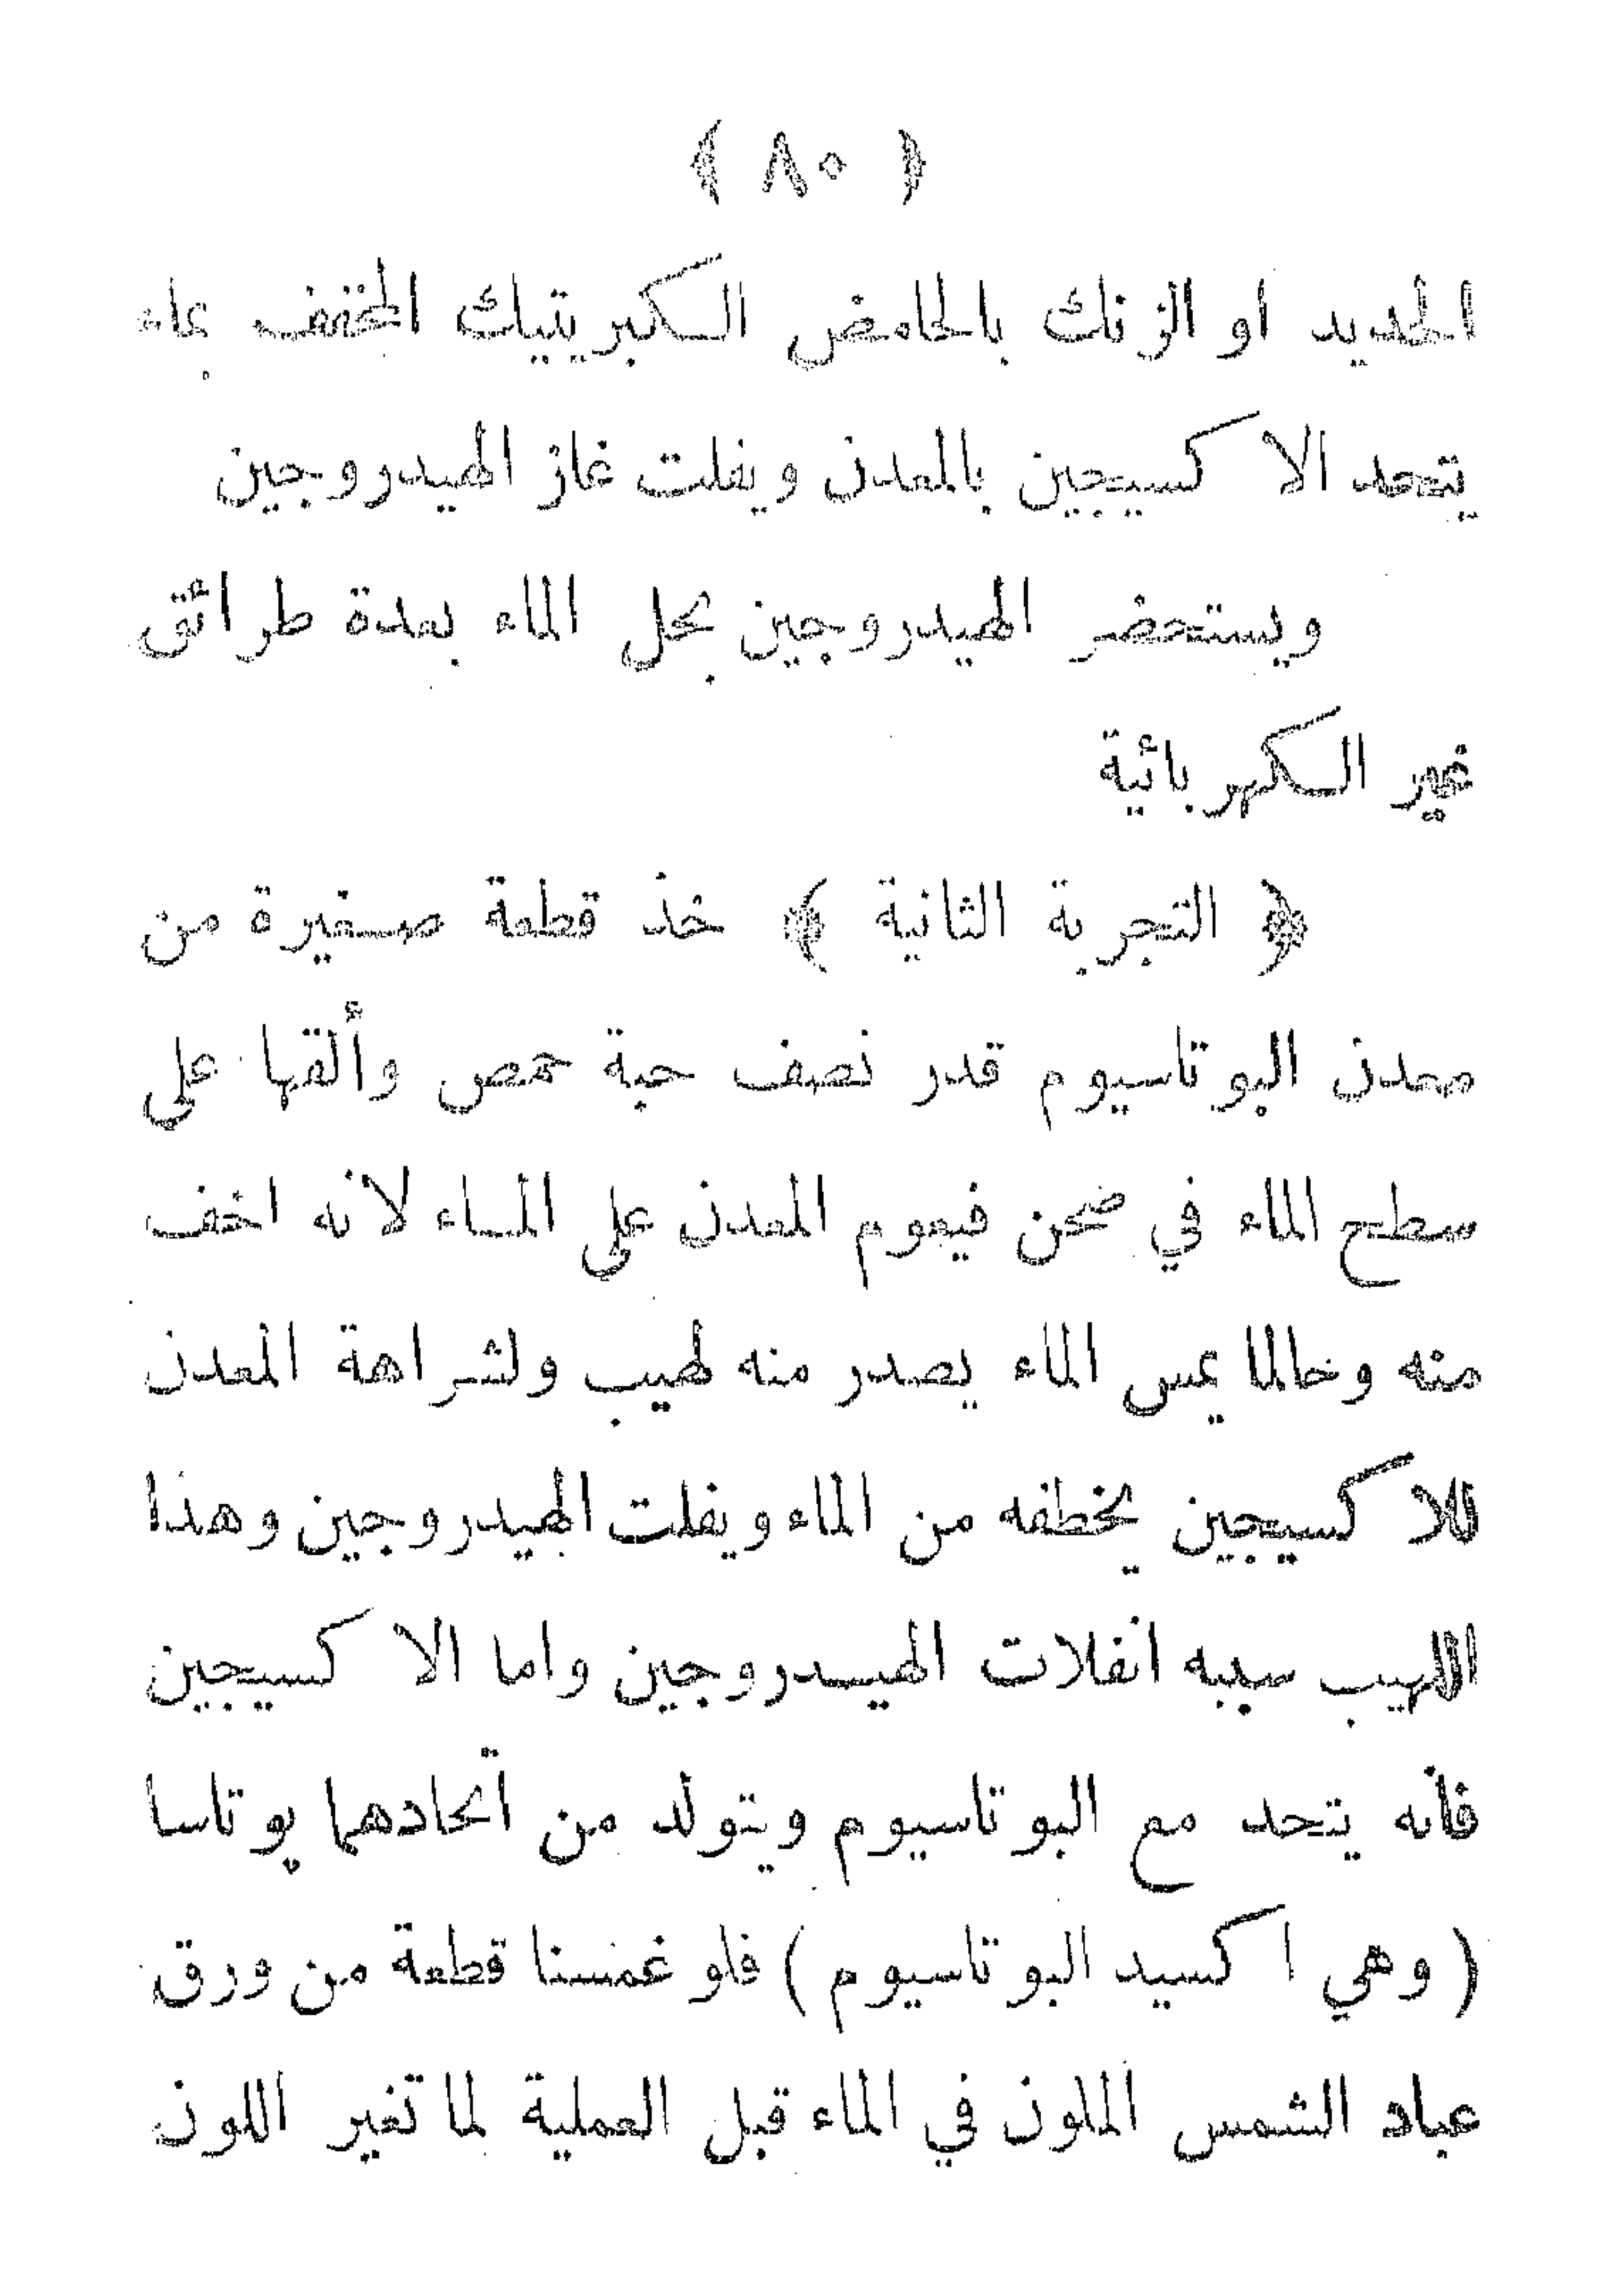 ﴿ ٨٠ ﴾
الحديد او الزنك بالحامض الكبريتيك المخفف بماء
يتحد الاكسيجين بالمعدن ويفلت غاز الهيدروجين
ويستحضر الهيدروجين بحل الماء بعدة طرائق
غير الكهربائية
﴿ التجربة الثانية ﴾ خذ قطعة صغيرة من
معدن البوتاسيوم قدر نصف حبة حمص وألقها على
سطح الماء في صحن فيعوم المعدن على الماء لانه اخف
منه وحالما يمس الماء يصدر منه لهيب ولشراهة المعدن
للاكسيجين يخطفه من الماء ويفلت الهيدروجين وهذا
اللهيب سببه انفلات الهيدروجين واما الاكسيجين
فأنه يتحد مع البوتاسيوم ويتولد من اتحادهما پوتاسا
( وهي اكسيد البوتاسيوم ) فلو غمسنا قطعة من ورق
عباد الشمس الملون في الماء قبل العملية لما تغير اللون